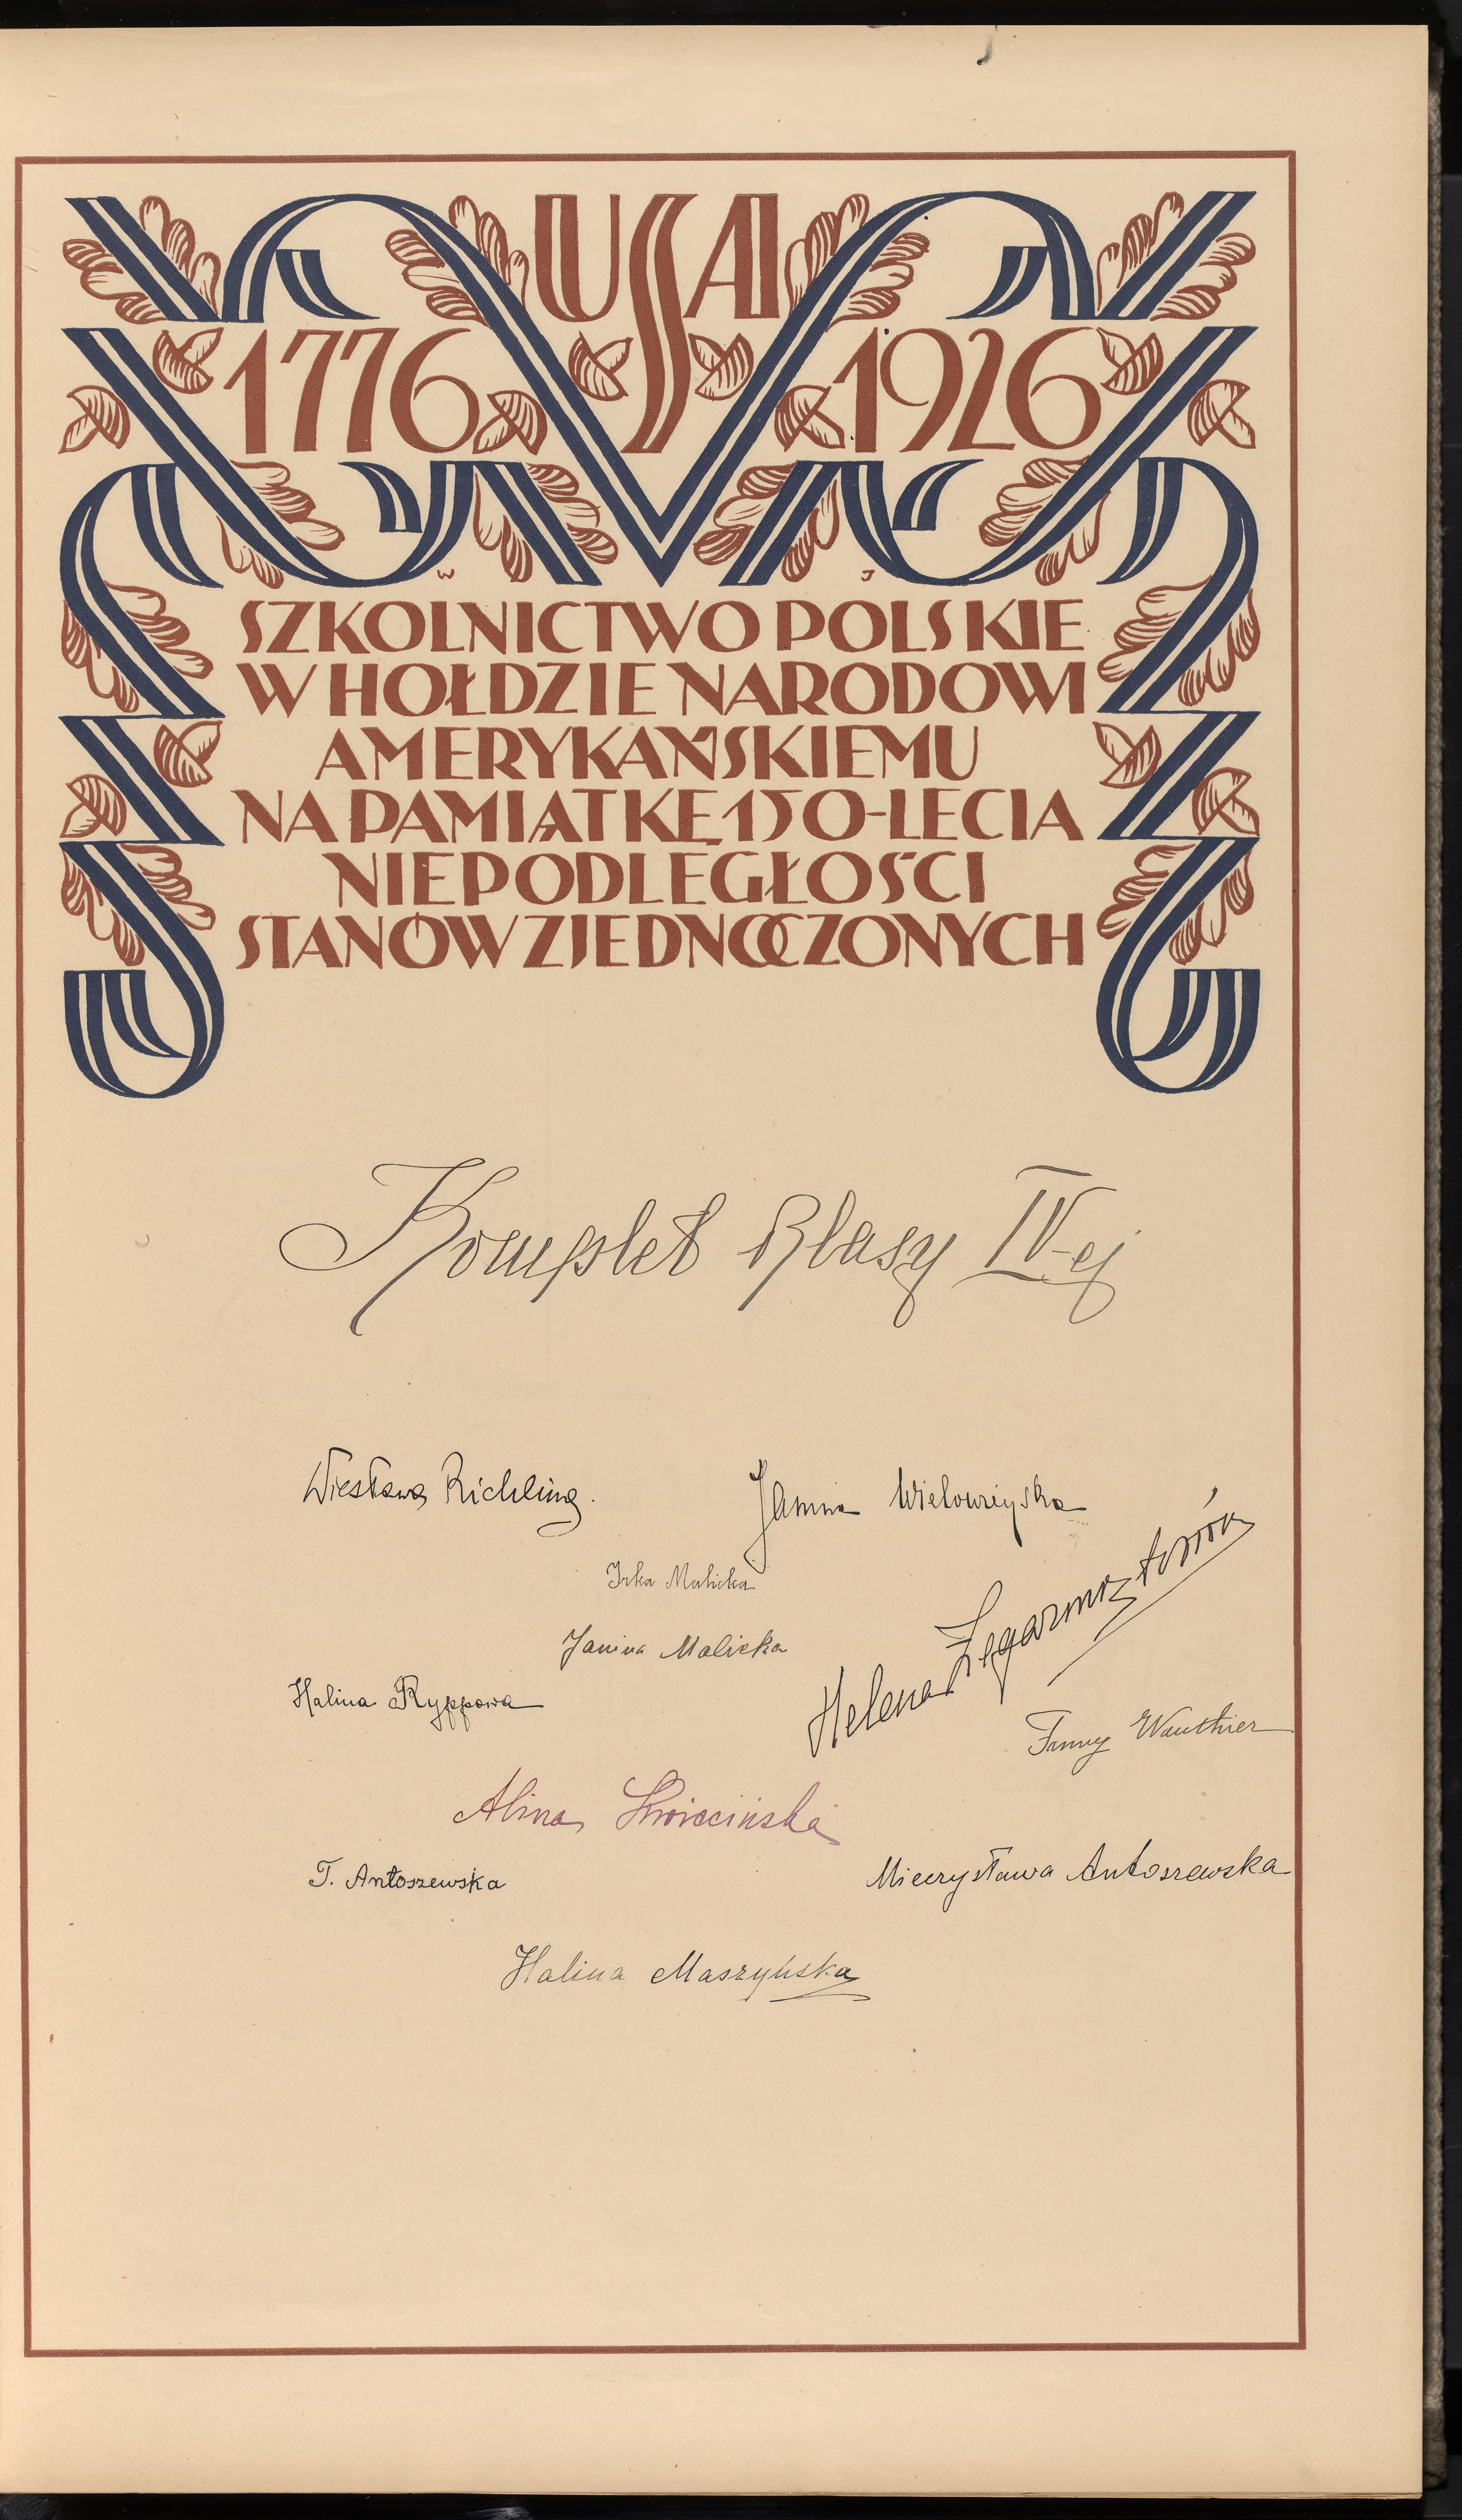 USA
1776 1926
W J
SZKOLNICTWO POLSKIE
W HOŁDZIE NARODOWI
AMERYKAŃSKIEMU
NA PAMIĄTKĘ 150-LECIA
NIEPODLEGŁOŚCI
STANÓW ZJEDNOCZONYCH
Komplet klasy IV-ej
Wiesława Richling.
Janina Wielowieyska
Irka Malicka
Janina Malicka
Helena Zegarmisztorów
Halina Ryppowa
Fanny Wauthier
Alina Kwiecińska
T. Antoszewska
Mieczysława Antoszewska
Halina Maszyńska